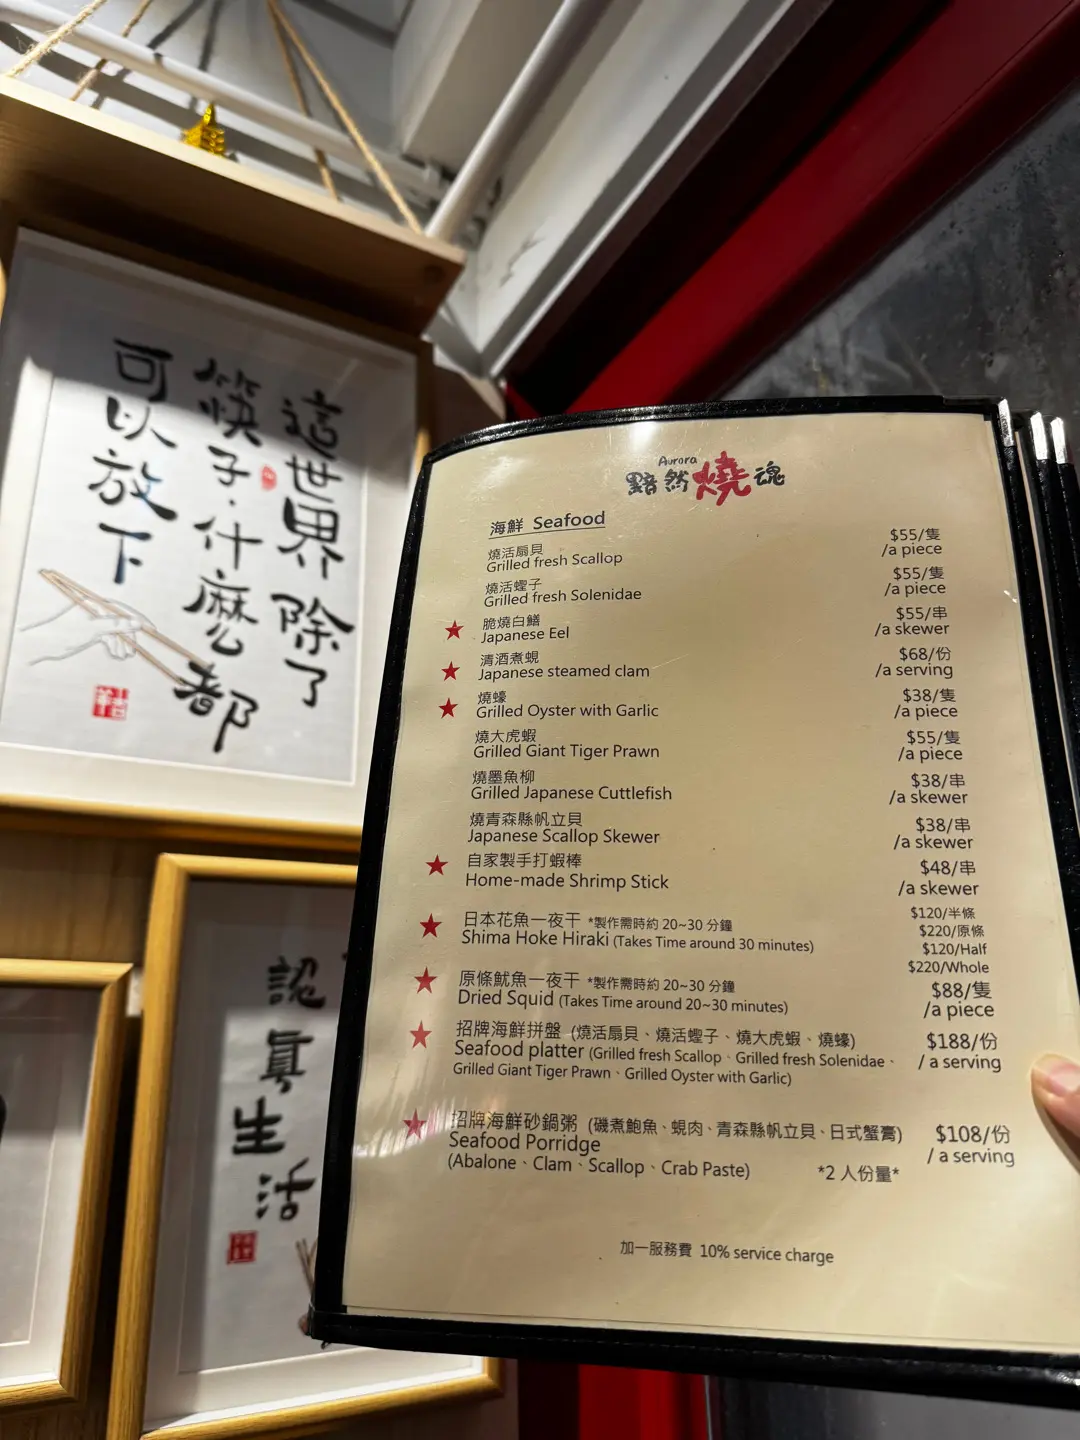 這世界除了
筷子·什麼都
可以放下
認真生活
Aurora
黯然燒魂
海鮮 Seafood
燒活扇貝
Grilled fresh Scallop
$55/隻
/a piece
燒活蟶子
Grilled fresh Solenidae
$55/隻
/a piece
★ 脆燒白鱔
Japanese Eel
$55/串
/a skewer
★ 清酒煮蜆
Japanese steamed clam
$68/份
/a serving
★ 燒蠔
Grilled Oyster with Garlic
$38/隻
/a piece
燒大虎蝦
Grilled Giant Tiger Prawn
$55/隻
/a piece
燒墨魚柳
Grilled Japanese Cuttlefish
$38/串
/a skewer
燒青森縣帆立貝
Japanese Scallop Skewer
$38/串
/a skewer
★ 自家製手打蝦棒
Home-made Shrimp Stick
$48/串
/a skewer
★ 日本花魚一夜干 *製作需時約 20~30 分鐘
Shima Hoke Hiraki (Takes Time around 30 minutes)
$120/半條
$220/原條
$120/Half
$220/Whole
★ 原條魷魚一夜干 *製作需時約 20~30 分鐘
Dried Squid (Takes Time around 20~30 minutes)
$88/隻
/a piece
★ 招牌海鮮拼盤 (燒活扇貝、燒活蟶子、燒大虎蝦、燒蠔)
Seafood platter (Grilled fresh Scallop、Grilled fresh Solenidae、
Grilled Giant Tiger Prawn、Grilled Oyster with Garlic)
$188/份
/ a serving
★ 招牌海鮮砂鍋粥 (磯煮鮑魚、蜆肉、青森縣帆立貝、日式蟹膏)
Seafood Porridge
(Abalone、Clam、Scallop、Crab Paste)
*2 人份量*
$108/份
/ a serving
加一服務費 10% service charge